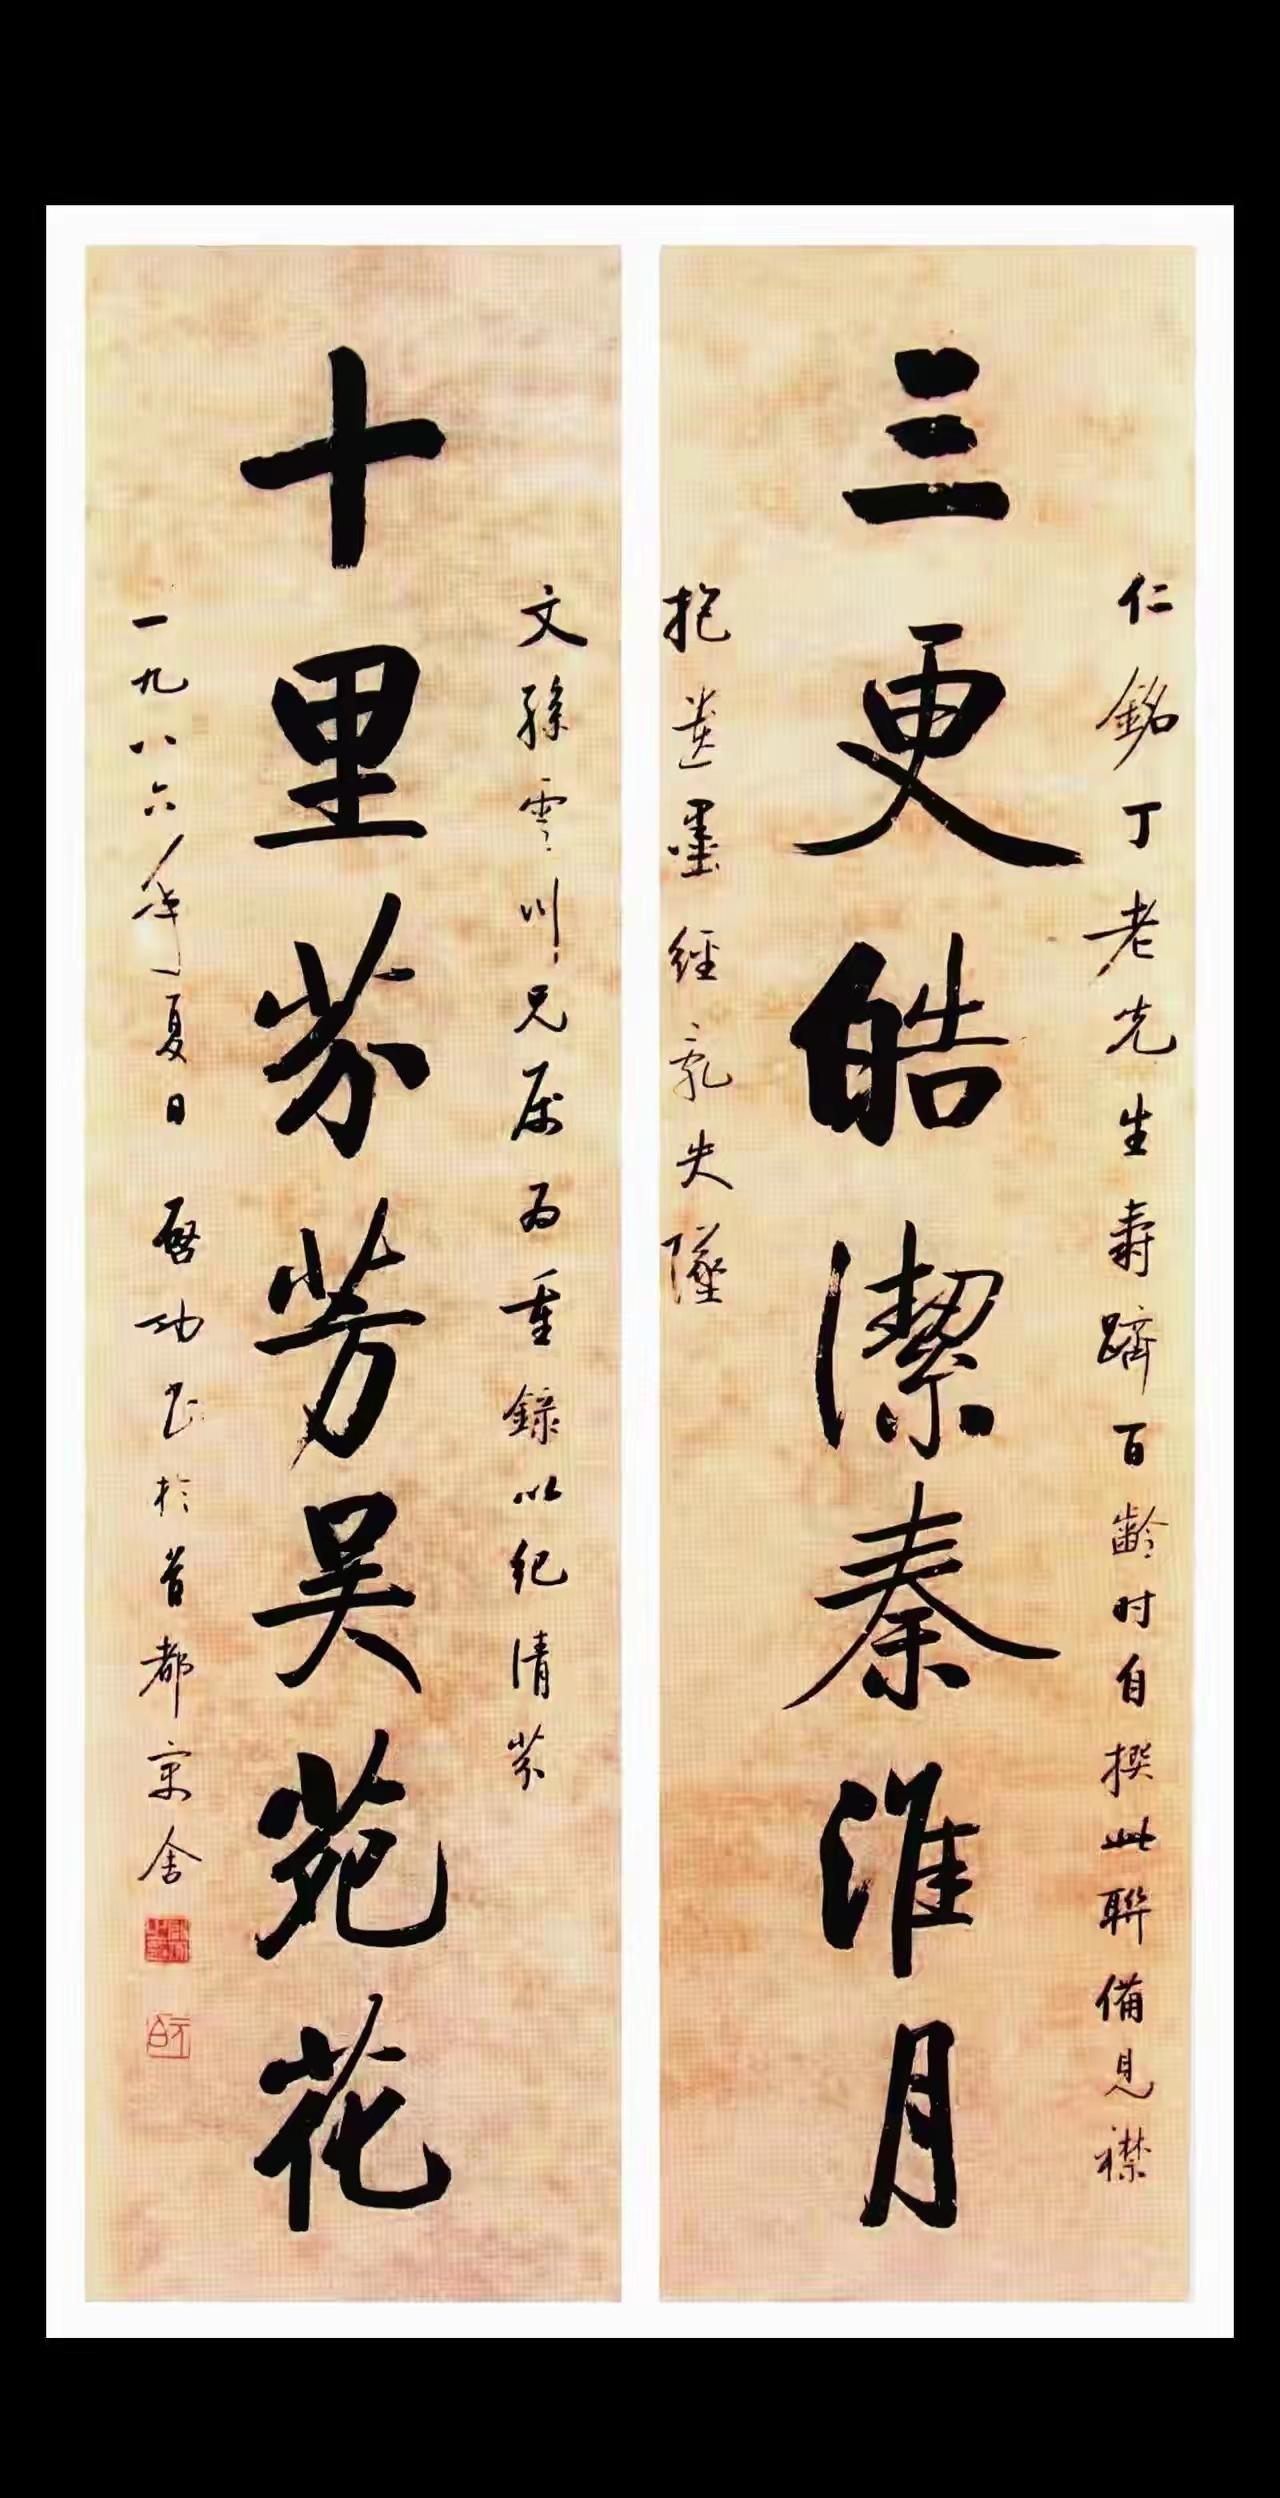 仁銘丁老先生壽躋百齡时自撰此聯備見襟
三更皓潔秦淮月
抱遺墨經亂失墜
文孫雲川兄屬为重錄以纪清芬
十里芬芳吴苑花
一九八六年夏日 啓功书於首都寓舍